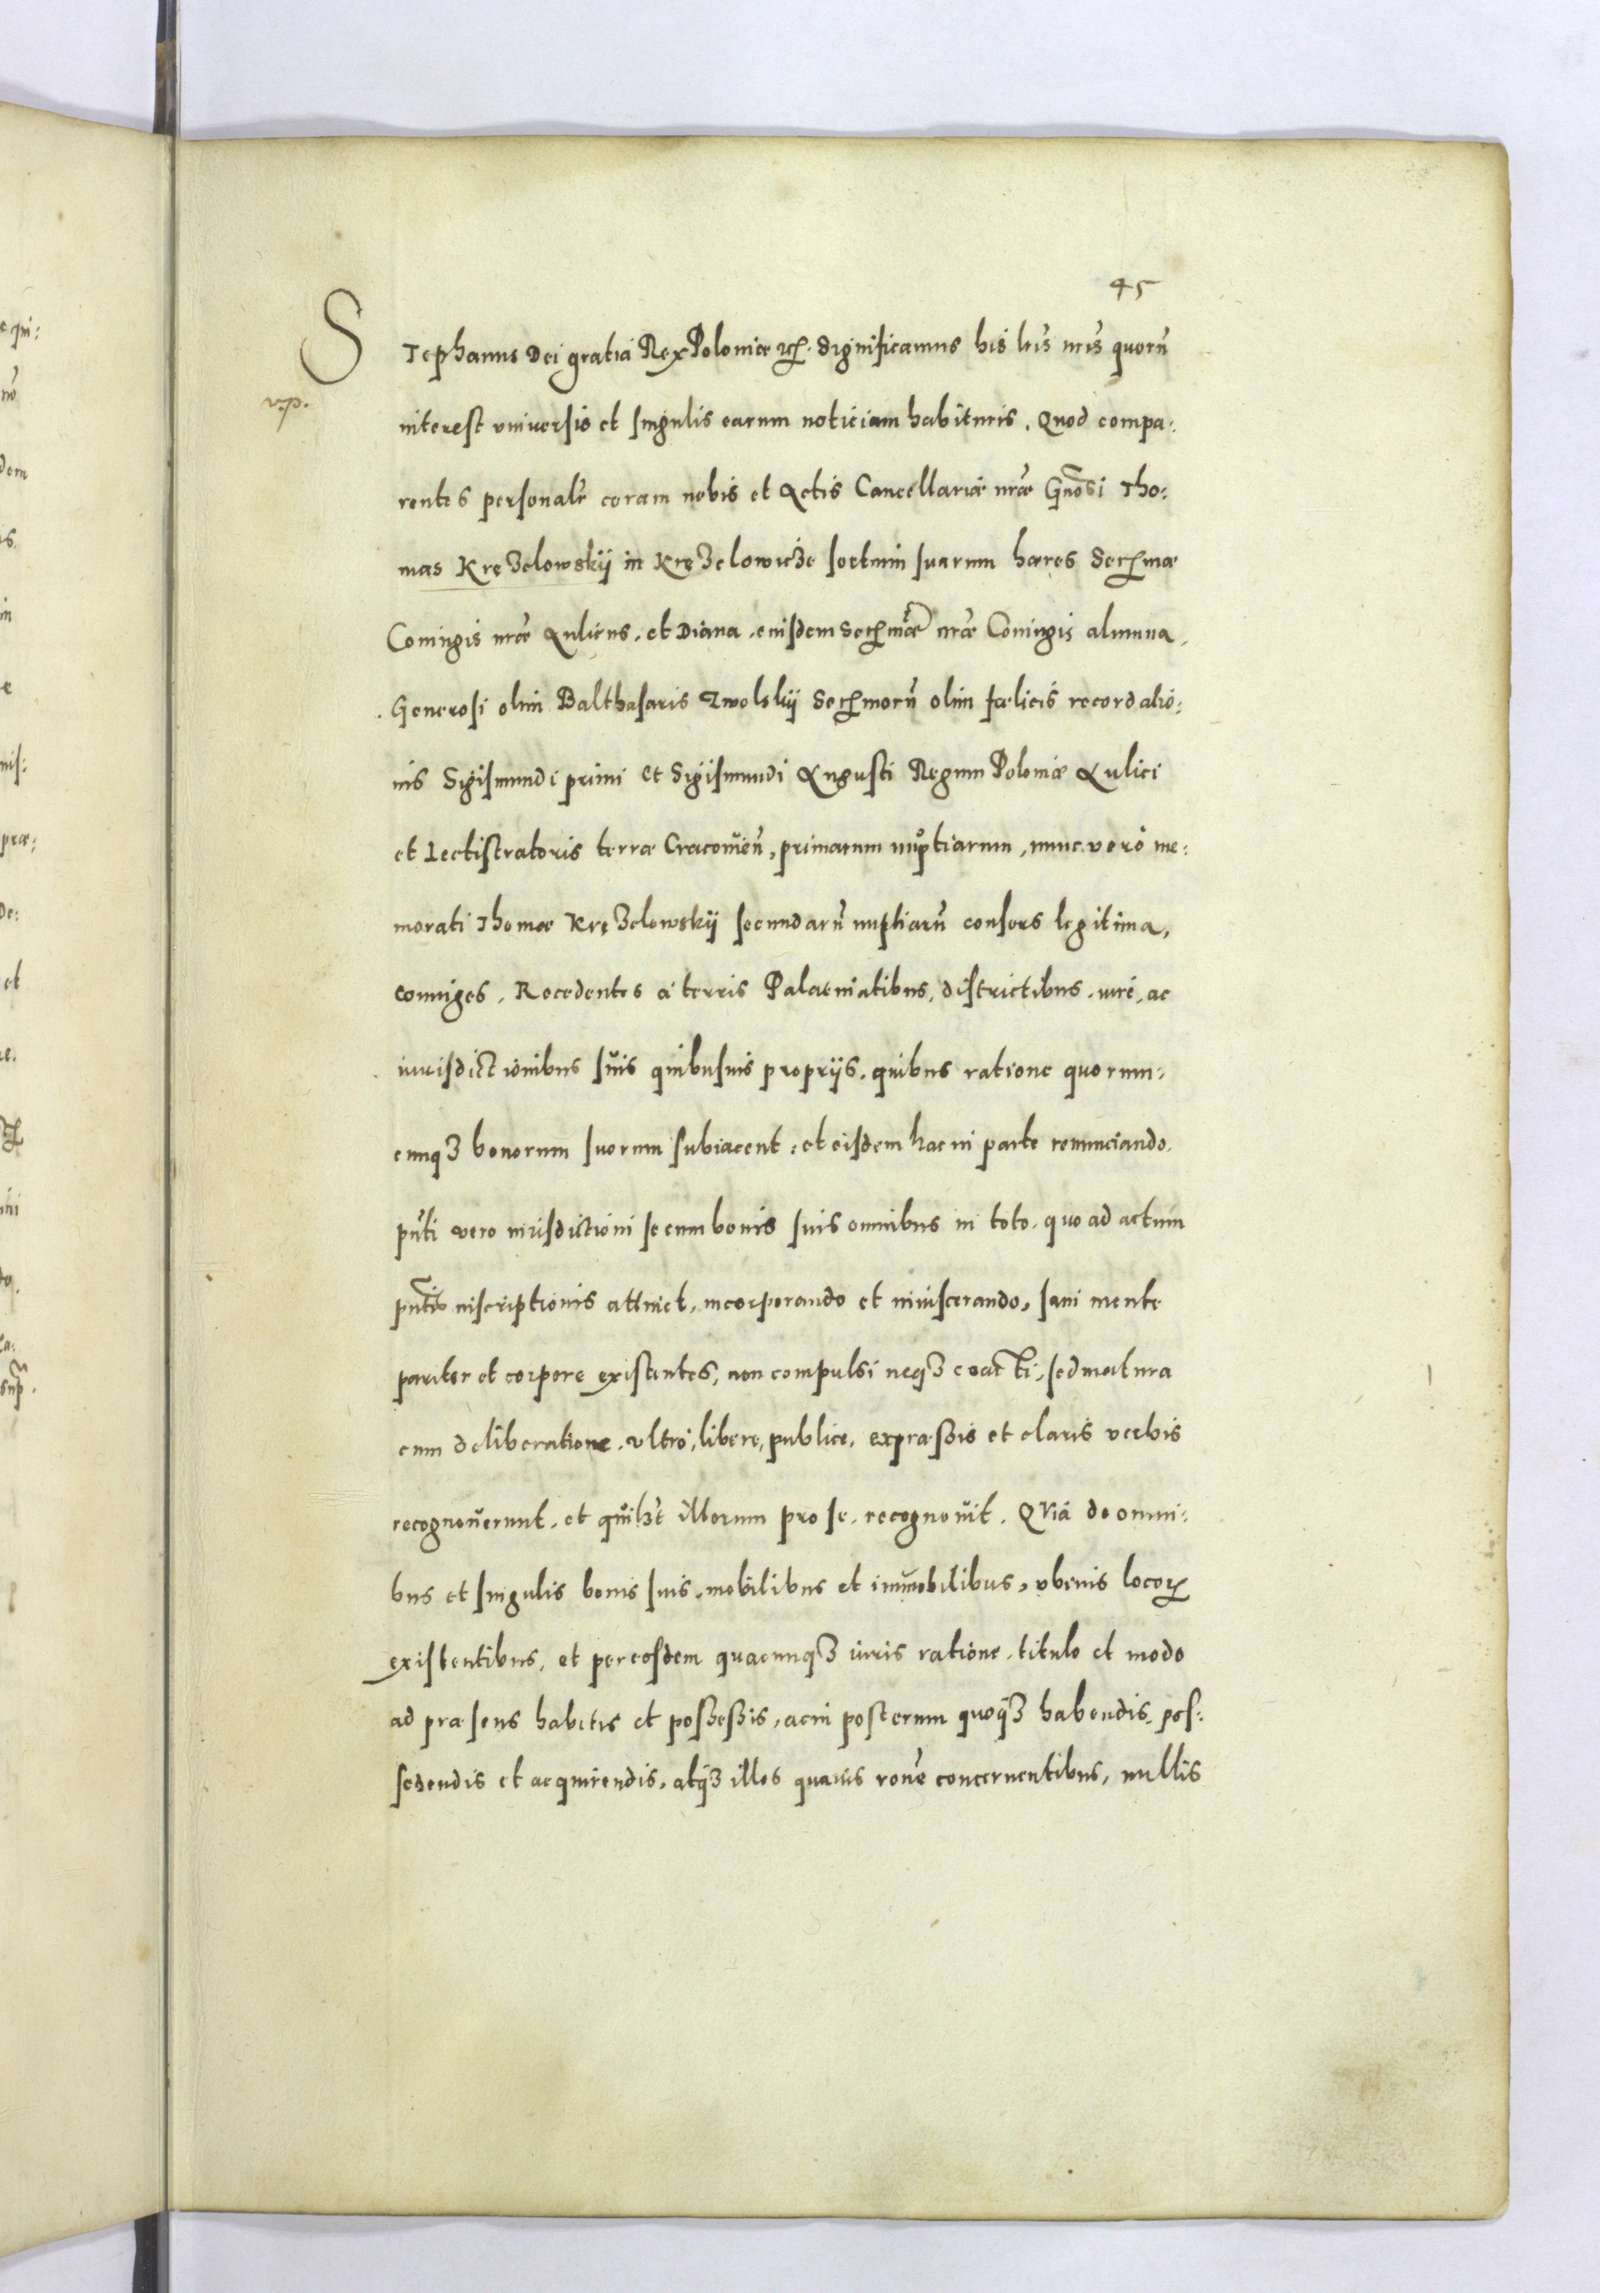 45
STephanus Dei gratia Rex Poloniæ etc. Significamus his lr̃is nr̃is quorũ
vp.
interest vniversis et singulis earum noticiam habituris. Quod compa:
rentes personalr̃ coram nobis et Actis Cancellariæ nr̃æ Gnõsi Tho:
mas Kręzelowskij in Kręzelowicze foetuin suarum hæres Serꝫmæ
Coniugis nr̃æ Aulicus, et Diana, eiusdem Serꝫmæ nr̃æ Coniugis alumna,
Generosi olim Balthasaris Zwolskij Serꝫmorũ olim fælicis recordatio:
nis Sigismundi primi et Sigismundi Augusti Regum Poloniæ Aulici
et Lectistratoris terræ Cracovieñ, primarum nuptiarum, nunc vero me:
morati Thomæ Kręzelowskij secundarũ nuptiarũ consors legitima,
coniuges. Recedentes a terris Palatinatibus, districtibus, iure, ac
iurisdictionibus suis quibusuis proprijs, quibus ratione quorum:
cunqꝫ bonorum suorum subiacent, et eisdem hac in parte renunciando,
pñti vero iurisdictioni se cum bonis suis omnibus in toto, quo ad actum
pñtis inscriptionis attinet, incorporando et inuiscerando, sani mente
pariter et corpore existentes, non compulsi neqꝫ coacti, sed matura
cum deliberatione, vltro, libere, publice, expræssis et claris verbis
recognouerunt, et quilibꝫt illorum pro se, recognouit. Quia de omni:
bus et singulis bonis suis, mobilibus et immobilibus, vbeuis locorꝫ
existentibus, et per eosdem quacunqꝫ iuris ratione, titulo et modo
ad præsens habitis et possessis, ac in posterum quoqꝫ habendis, pos:
sedendis et acquirendis, atqꝫ illos quauis rõne concernentibus, nullis